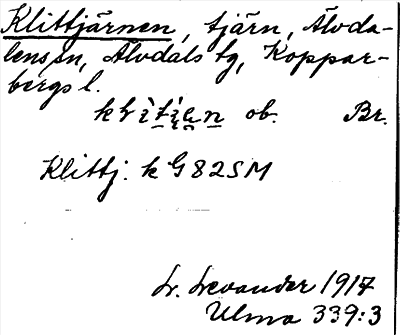 Klittjärnen, tjärn, Älvda-
lens sn, Älvdals tg, Koppar-
bergs l.
ob. Br.
Klittj. k G 82SM
L. Levander 1917
Ulma 339:3